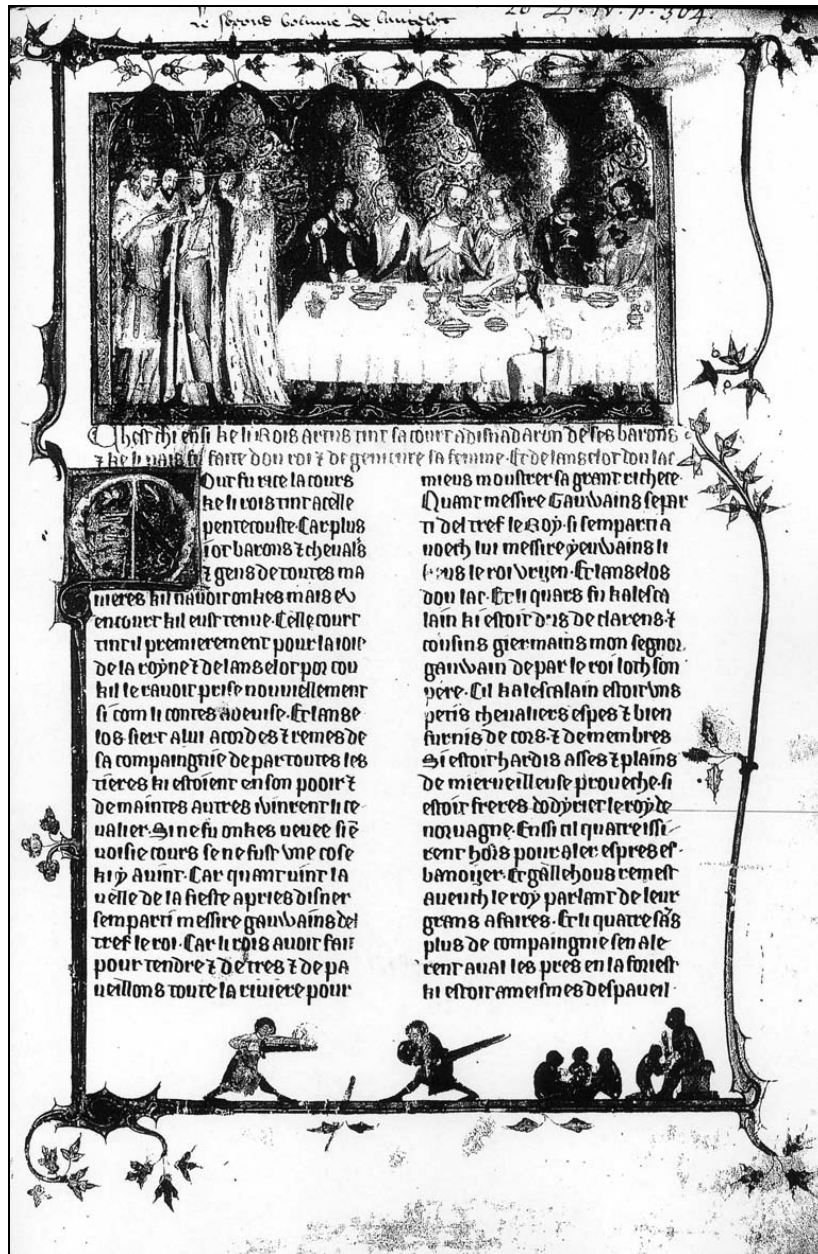 Le second volume de lancelot
20 D. IV. p. 304.
Chest chi ensi ke li Rois artus tint sa court a disnadaron de ses barons
⁊ ke li pais fu faite dou roi ⁊ de genieure sa femme. Et de lanselot dou lac
Out fu rice la cours
ke li rois tint a celle
pentecouste. Car plus
i ot barons ⁊ cheualrs
⁊ gens de toutes ma
nieres kil nauoit onkes mais eu
en court kil eust tenue. Celle court
tint il premierement pour la ioie
de la royne ⁊ de lanselot por cou
kil le rauoit prise nouuiellement
si com li contes adeuise. Et lanse
los siert a lui acordes ⁊ remes de
sa compaingnie de par toutes les
tieres ki estoient en son pooir ⁊
de maintes autres i vinrent li ce
ualier. Si ne fu onkes ueuee si en
uoisie cours se ne fust vne cose
ki y auint. Car quant uint la
uelle de la fieste apries disner
semparti messire gauvains del
tref le roi. Car li rois auoit fait
pour tendre ⁊ de tres ⁊ de pa
ueillons toute la riuiere pour
mieus moustrer sa grant richete.
Quant messire Gauvains separ
ti del tref le Roy. si semparti a
uoech lui messire yeuvains li
le roi vryen. Et lanselos
dou lac. Et li quars fu kalesca
lain ki estoit de clarens. ⁊
cousins giermains mon segnor
gauvain de par le roi loth son
pere. Cil kalescalain estoit vns
petis cheualiers espes ⁊ bien
furnis de cors. ⁊ de membres
Si estoit hardis asses ⁊ plains
de mierueilleuse proueche. si
estoit freres dodyrier le roy de
norvagne. Enssi cil quatre issi
rent hors pour aler es pres es
banoyer. Et gallehous remest
aueuch le roy parlant de leur
grans afaires. Et li quatre sans
plus de compaingnie sen ale
rent aual les pres en la foriest
ki estoit a meismes des paueil